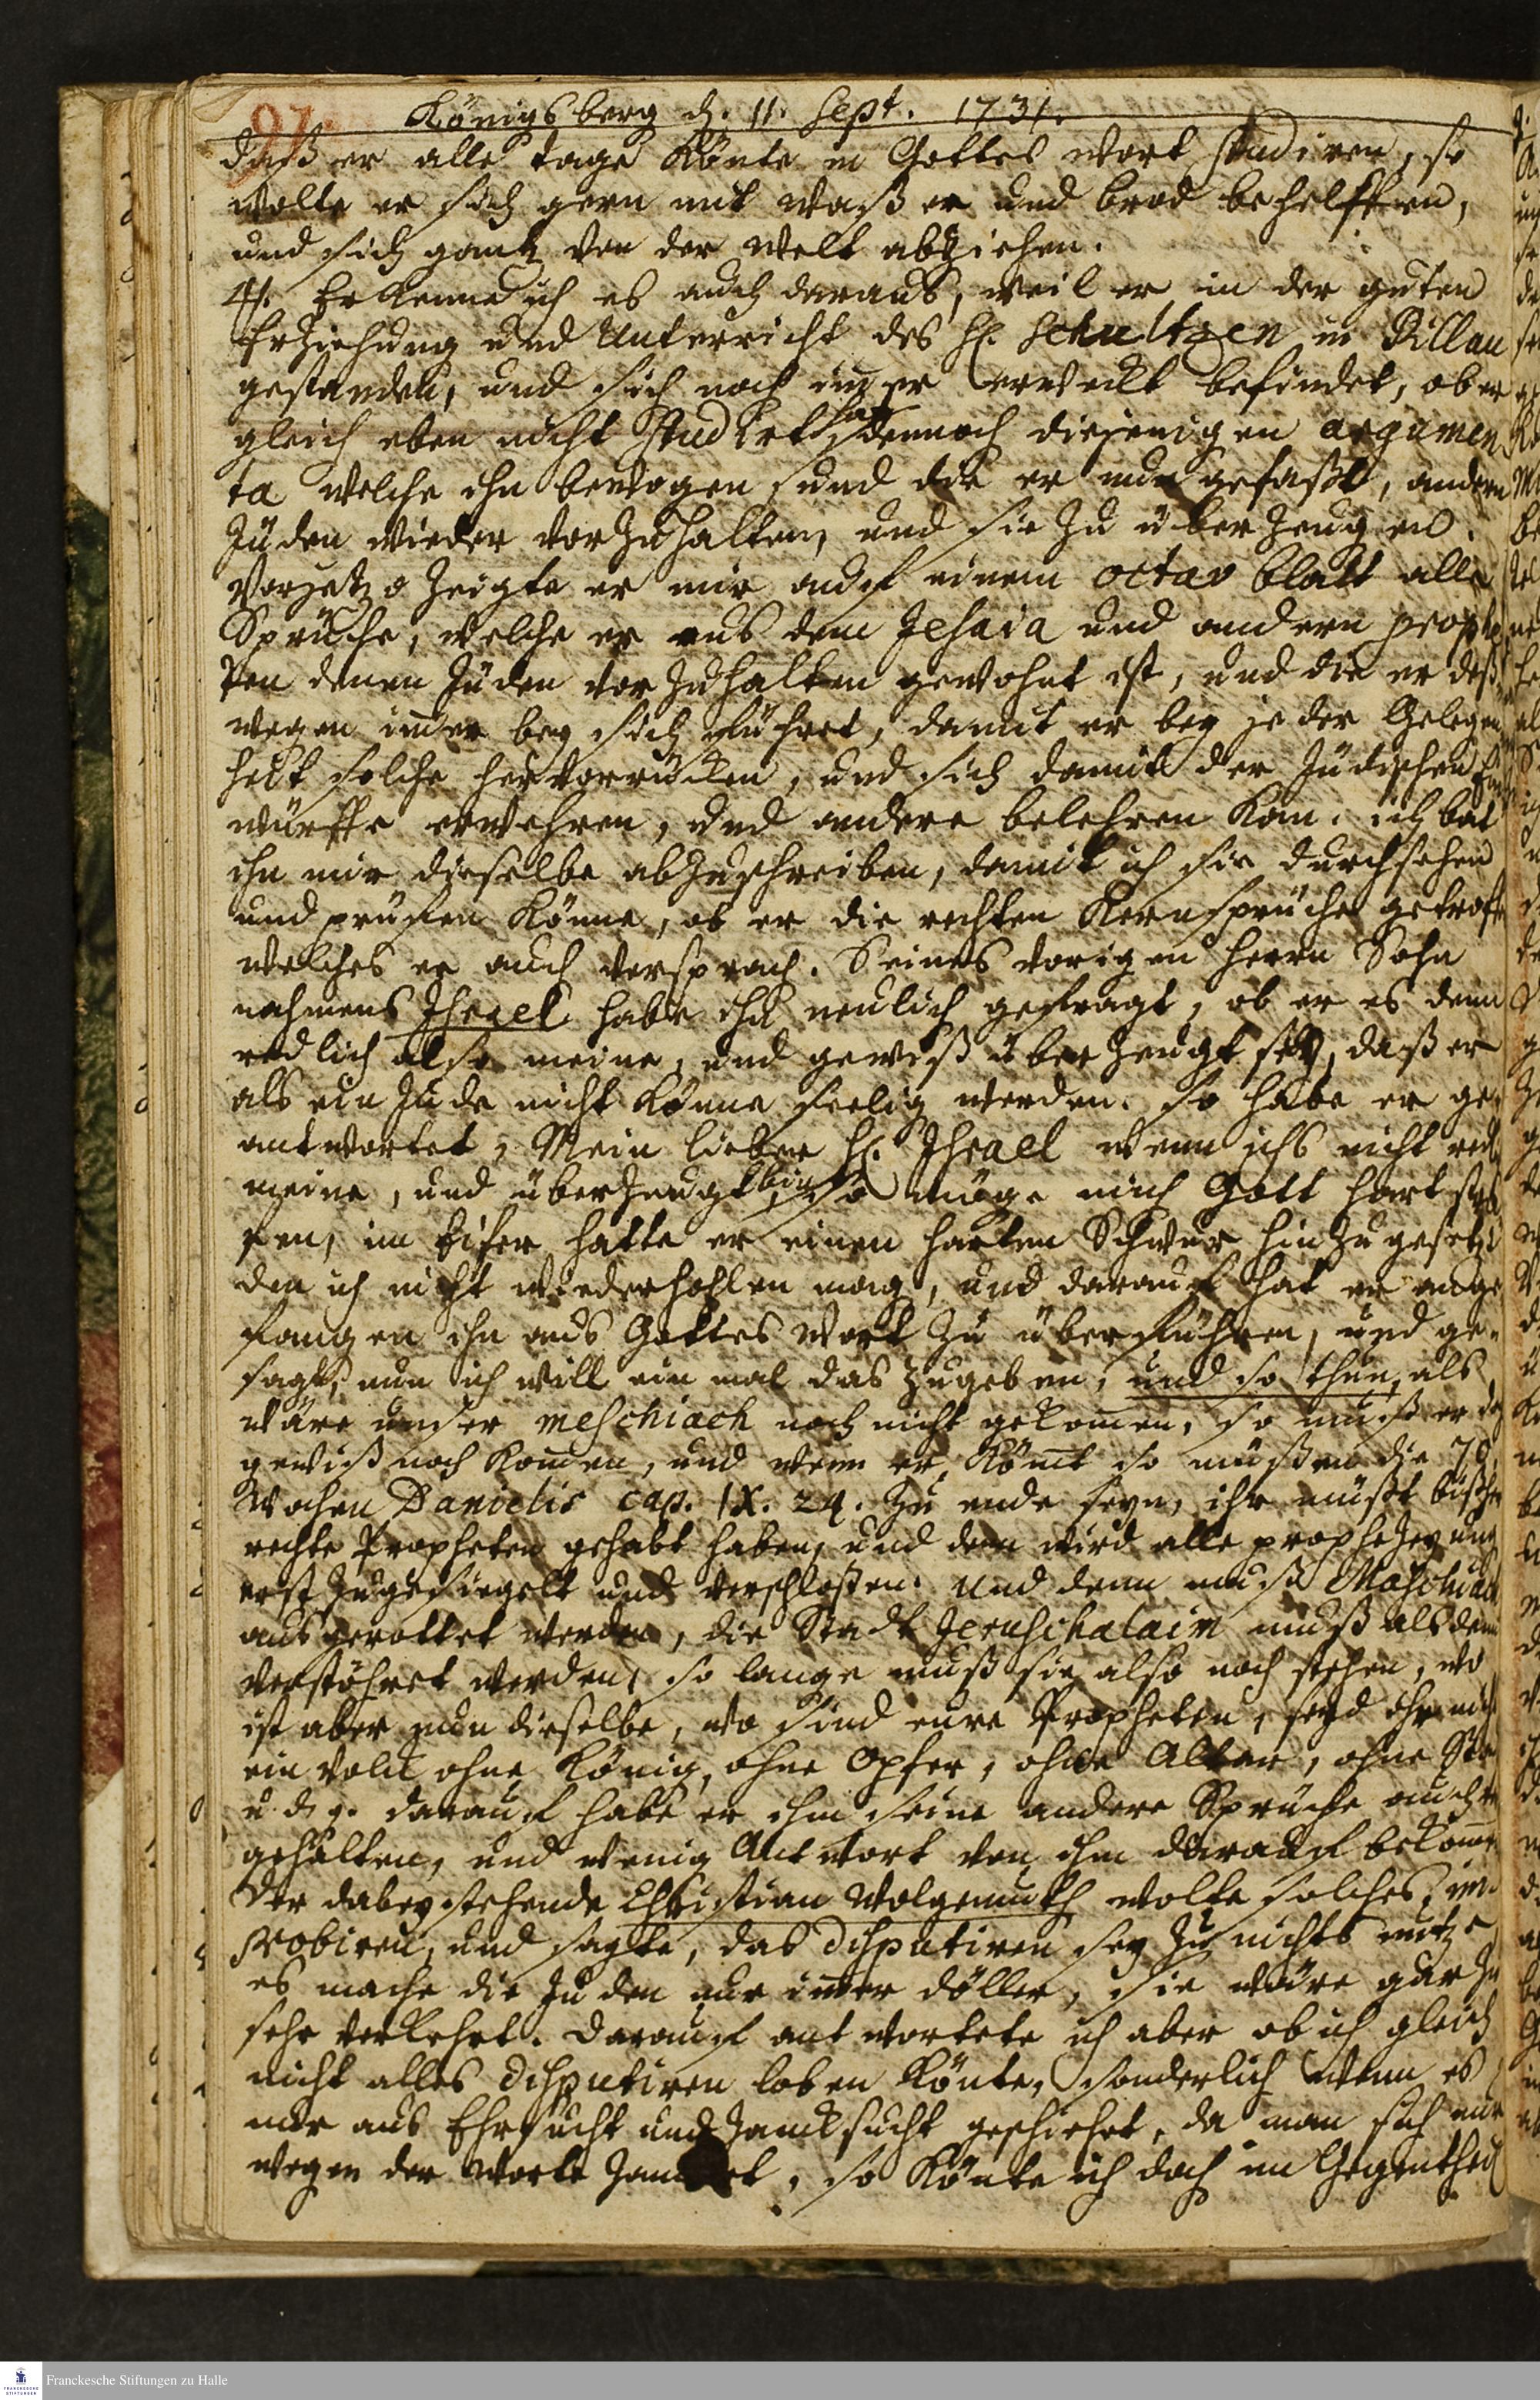 97.
Königsberg d. 11. Sept. 1731.
daß er alle tage könte in Gottes wort studiren, so
wolte er sich gern mit waßer und brod behelffen,
und sich gantz von der welt abziehen.
4. Erkenne ich es auch daraus, weil er in der guten
Erziehung und Unterricht des H. Schultzen in Pillau
gestanden, und sich noch im̅er erweckt befindet, ob er
gleich eben nicht studirt hat dennoch diejenigen argumen
ta welche ihn bewogen, und die er nun gefaßt, andern
Juden wieder vorzuhalten, und sie zu überzeugen.
Vorjetzo zeigte er mir auf einem octav blatt alle
Sprüche, welche er aus dem Jesaia und andern prophe
ten denen Juden vorzuhalten gewohnt ist, und die er deß
wegen im̅er bey sich führet, damit er bey jeder Gelegen
heit solche hervorrücken, und sich damit der Jüdischen Ein
würffe erwehren, und andere belehren kan. ich bat
ihn mir dieselbe abzuschreiben, damit ich sie durchsehen
und prüfen könne, ob er die rechten Kernsprüche getroffe
welches er auch versprach. Seines vorigen Herrn Sohn
nahmens Israel habe ihn neulich gefragt, ob er es denn
redlich also meine, und gewiß überzeugt sey, daß er
als ein Jude nicht könne seelig werden. so habe er ge
antwortet, Mein lieber H. Israel wenn ichs nicht redl
meine, und überzeugt bin, so möge mich Gott hart stra
fen, im Eifer hatte er einen harten Schwur hinzugesetzt
den ich nicht wiederhohlen mag, und darauf hat er ange
fangen ihn aus Gottes Wort zu überführen, und ge-
sagt, nun ich will ein mal das zugeben, und so thun, als
wäre unser Meschiach noch nicht gekom̅en, so muß er doch
gewiß noch kom̅en, und wenn er kömt so müßen die 70
Wochen Danielis cap. IX. 24. zu ende seyn, ihr müßt bißher
rechte Propheten gehabt haben, und denn wird alle prophezeyung
erst zugesiegelt und verschloßen. Und denn muß Maschiach
ausgerottet werden, die Stadt Jeruschalaim muß alsdenn
verstöhret werden, so lange muß sie also noch stehen, wo
ist aber nun dieselbe, wo sind eure Propheten, seyd ihr nicht
ein volck ohne König, ohne Opfer, ohne Altar, ohne
u. d. g. darauf habe er ihm seine andere Sprüche auch
gehalten, und wenig Antwort von ihm darauf bekom̅en
Der dabey stehende Christian Wolgemuth wolte solches im
probiren, und sagte, das disputiren sey zu nichts nütze
es mache die Juden nur im̅er döller, sie wäre gar zu
sehr verkehrt. Darauf antwortete ich aber ob ich gleich
nicht alles disputiren loben könte, sonderlich wenn es
nur aus Ehrsucht und Zancksucht geschiehet, da man sich nur
wegen der Worte zancket, so könte ich doch im Gegentheil
Franckesche Stiftungen zu Halle